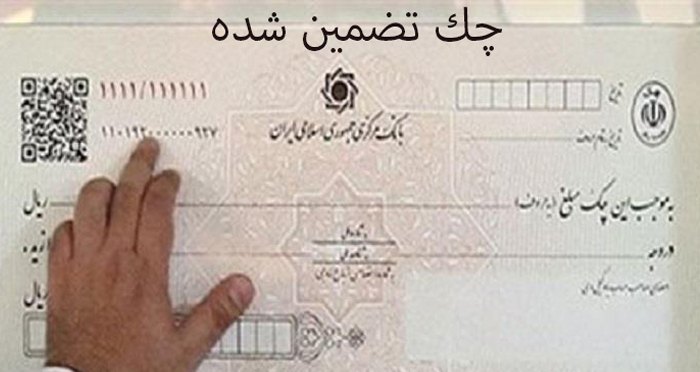 چك تضمين شده
۱۱۱۱/۱۱۱۱۱۱
تاریخ
۱۱۰۱۹۲۰۰۰۰۰۰۹۲۷
بانک مرکزی جمهوری اسلامی ایران
تاریخ به تمام حروف
به موجب این چک مبلغ (به حروف) ریال
در وجه
به شماره ملی
ریال